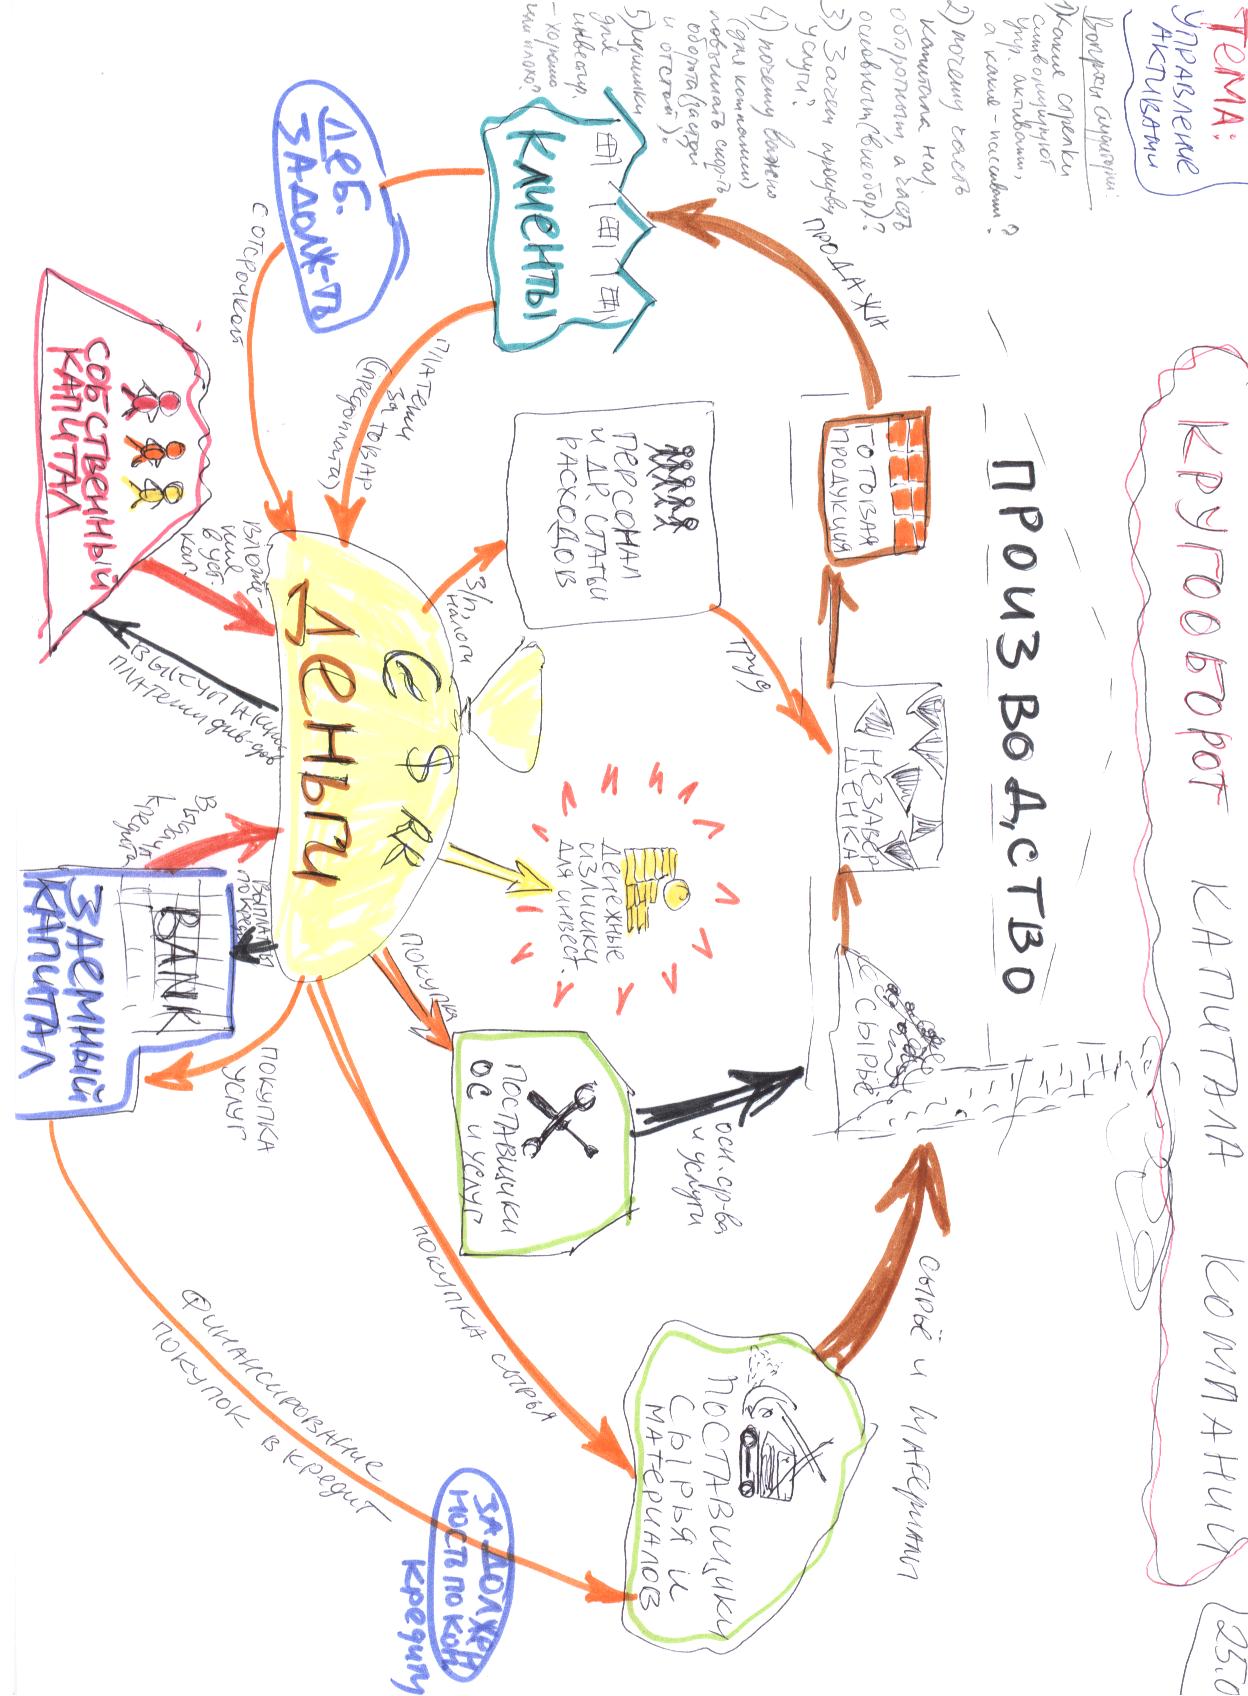 ТЕМА:
УПРАВЛЕНИЕ
АКТИВАМИ
КРУГООБОРОТ КАПИТАЛА КОМПАНИИ
25.0
Вопросы аудитории:
1) Какие стрелки
символизируют
упр. активами,
а какие - пассивами?
2) почему часть
капитала наз.
оборотным, а часть
основным (внеобор)?
3) Зачем
услуги?
4) почему важно
(для компании)
повышать скор-ть
оборота
и отстой)?
5) излишки
для
инвестир.
- хорошо
или плохо?
ПРОИЗВОДСТВО
ПРОДАЖИ
ГОТОВАЯ
ПРОДУКЦИЯ
НЕЗАВЕР
ШЕНКА
СЫРЬЁ
СЫРЬЁ и МАТЕРИАЛЫ
КЛИЕНТЫ
ПЕРСОНАЛ
И ДР. СТАТЬИ
РАСХОДОВ
ТРУД
ДЕБ.
ЗАДОЛЖ-ТЬ
С ОТСРОЧКОЙ
ПЛАТЕЖИ
ЗА ТОВАР
(предоплата)
З/П,
налоги
€ $ RK
ДЕНЬГИ
ДЕНЕЖНЫЕ
ИЗЛИШКИ
ДЛЯ ИНВЕСТ.
ПОКУПКА
ПОСТАВЩИКИ
ОС И УСЛУГ
осн. ср-ва
и услуги
ПОСТАВЩИКИ
СЫРЬЯ И
МАТЕРИАЛОВ
ПОКУПКА СЫРЬЯ
СОБСТВЕННЫЙ
КАПИТАЛ
ВЛОЖЕ-
НИЕ
В УСТ.
КАП.
ВЫКУП АКЦИЙ
ПЛАТЕЖИ ДИВ-ДОВ
ВЫДАЧА
КРЕДИТА
ВЫПЛАТЫ
ПО КРЕД.
BANK
ЗАЕМНЫЙ
КАПИТАЛ
ПОКУПКА
УСЛУГ
ФИНАНСИРОВАНИЕ
ПОКУПОК В КРЕДИТ
ЗАДОЛЖЕН
НОСТЬ ПО КОМ
КРЕДИТУ